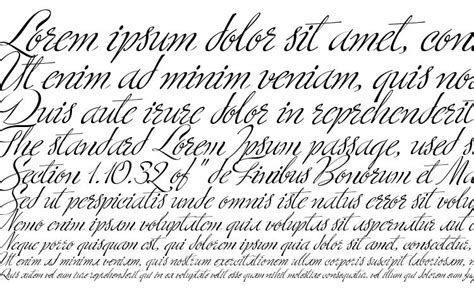 Lorem ipsum dolor sit amet, cons
Ut enim ad minim veniam, quis nos
Duis aute irure dolor in reprehenderit
The standard Lorem Ipsum passage, used s
Section 1.10.32 of "de Finibus Bonorum et Ma
Sed ut perspiciatis unde omnis iste natus error sit volup
Nemo enim ipsam voluptatem quia voluptas sit aspernatur aut o
Neque porro quisquam est, qui dolorem ipsum quia dolor sit amet, consectetur,
Ut enim ad minima veniam, quis nostrum exercitationem ullam corporis suscipit laboriosam, nisi
Quis autem vel eum iure reprehenderit qui in ea voluptate velit esse quam nihil molestiae consequatur, vel illum qui dolorem eum fug